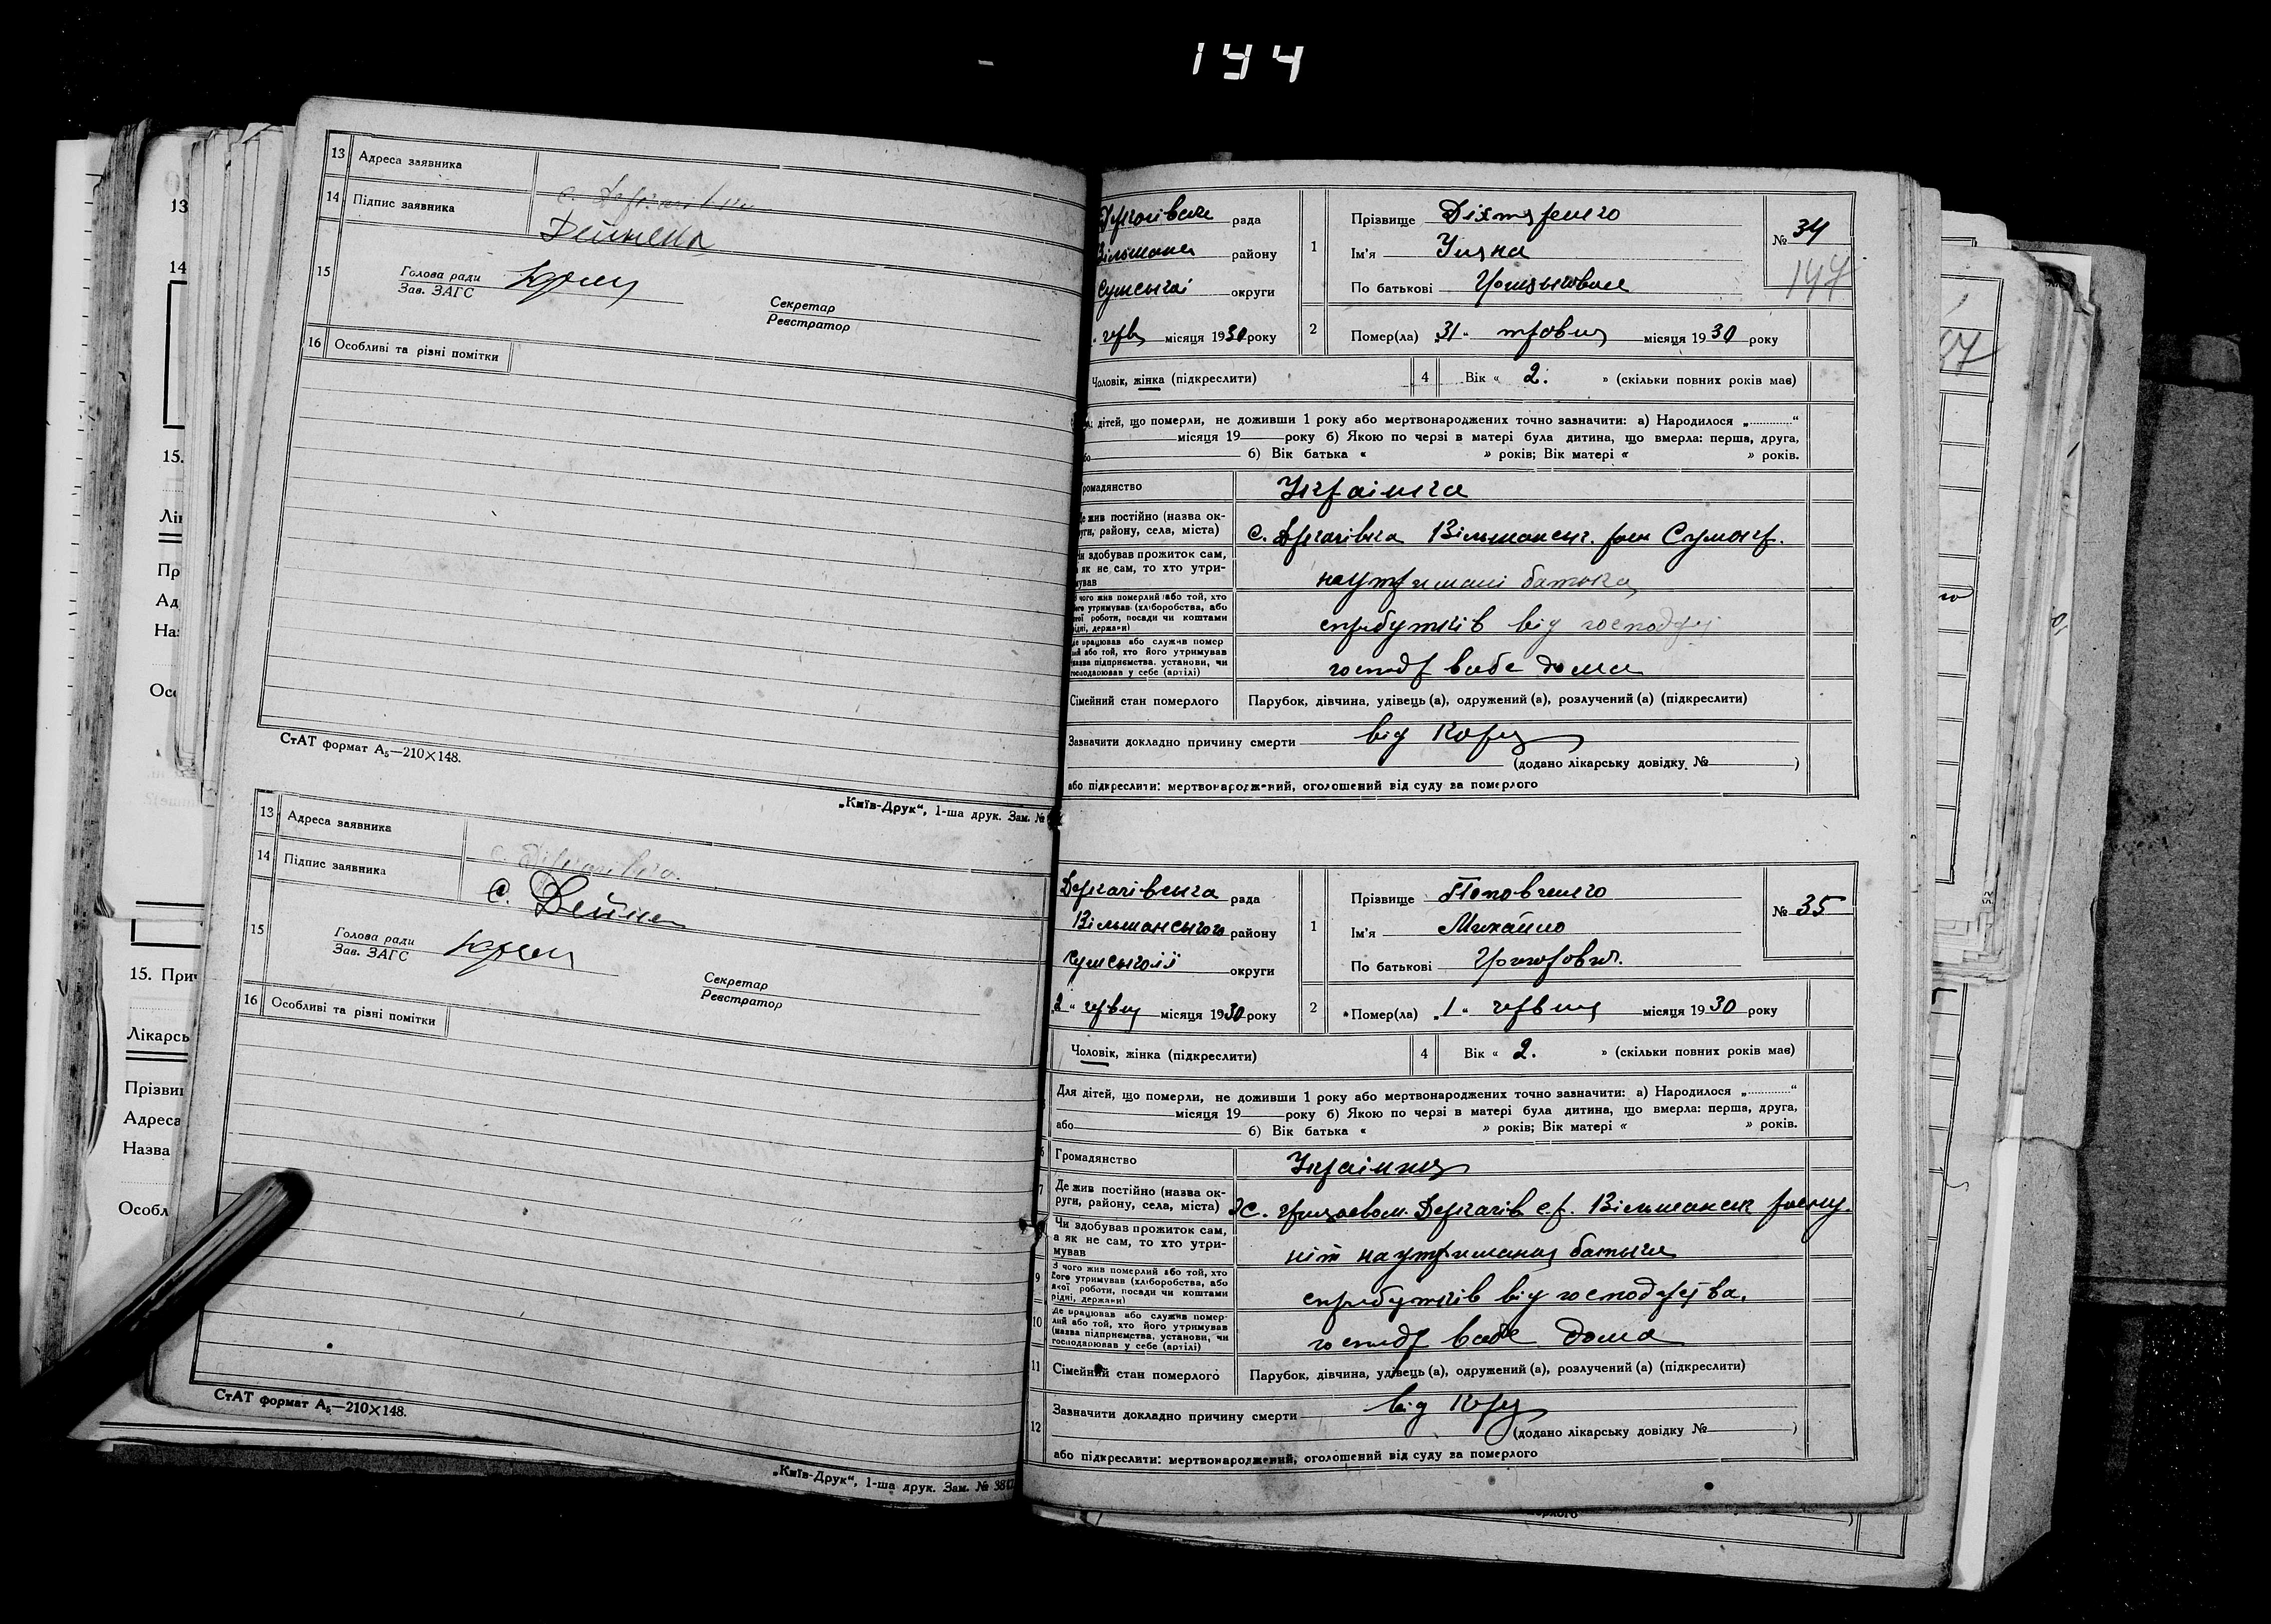 194
13 Адреса заявника
14 Підпис заявника
Дейнека
15 Голова ради
Зав. ЗАГС
Секретар
Реєстратор
16 Особливі та різні помітки
СтАТ формат А₅—210×148.
„Київ-Друк“, 1-ша друк. Зам. №
13 Адреса заявника
14 Підпис заявника
15 Голова ради
Зав. ЗАГС
Секретар
Реєстратор
16 Особливі та різні помітки
СтАТ формат А₅—210×148.
„Київ-Друк“, 1-ша друк. Зам. №
рада
району
округи
місяця 1930 року
1
Прізвище Діхтяренко
Ім'я
По батькові
№ 34
2 Помер(ла) „31“ травня місяця 1930 року
Чоловік, жінка (підкреслити)
4 Вік « 2. » (скільки повних років має)
дітей, що померли, не доживши 1 року або мертвонароджених точно зазначити: а) Народилося „............“
місяця 19 року б) Якою по черзі в матері була дитина, що вмерла: перша, друга,
б) Вік батька « » років; Вік матері « » років.
Громадянство Українка
Де жив постійно (назва ок-
руги, району, села, міста) с. Деркачівка Вільшанськ. рай Сум окр.
Чи здобував прожиток сам,
а як не сам, то хто утри-
мував
на утримані батька
З чого жив померлий або той, хто
його утримував (хліборобства, або
якої роботи, посади чи коштами
рідні, держави)
від
Де працював або служив помер-
лий або той, хто його утримував
(назва підприємства, установи, чи
господарював у себе (артілі)
дома
Сімейний стан померлого Парубок, дівчина, удівець (а), одружений (а), розлучений (а) (підкреслити)
Зазначити докладно причину смерти від Кору
(додано лікарську довідку № )
або підкреслити: мертвонароджений, оголошений від суду за померлого
Деркачівська рада
Вільшанського району
Сумської округи
„2“ червня місяця 1930 року
1
Прізвище Поповченко
Ім'я Михайло
По батькові Григорович.
№ 35
2 Помер(ла) „1“ червня місяця 1930 року
Чоловік, жінка (підкреслити)
4 Вік « 2. » (скільки повних років має)
Для дітей, що померли, не доживши 1 року або мертвонароджених точно зазначити: а) Народилося „............“
місяця 19 року б) Якою по черзі в матері була дитина, що вмерла: перша, друга,
або б) Вік батька « » років; Вік матері « » років.
6 Громадянство Українця
7 Де жив постійно (назва ок-
руги, району, села, міста) Деркачів с.р. Вільшанськ району.
Чи здобував прожиток сам,
а як не сам, то хто утри-
мував
ні на утримання батька
9 З чого жив померлий або той, хто
його утримував (хліборобства, або
якої роботи, посади чи коштами
рідні, держави)
від господарства.
10 Де працював або служив помер-
лий або той, хто його утримував
(назва підприємства, установи, чи
господарював у себе (артілі)
дома
11 Сімейний стан померлого Парубок, дівчина, удівець (а), одружений (а), розлучений (а) (підкреслити)
12 Зазначити докладно причину смерти від Кору
(додано лікарську довідку № )
або підкреслити: мертвонароджений, оголошений від суду за померлого